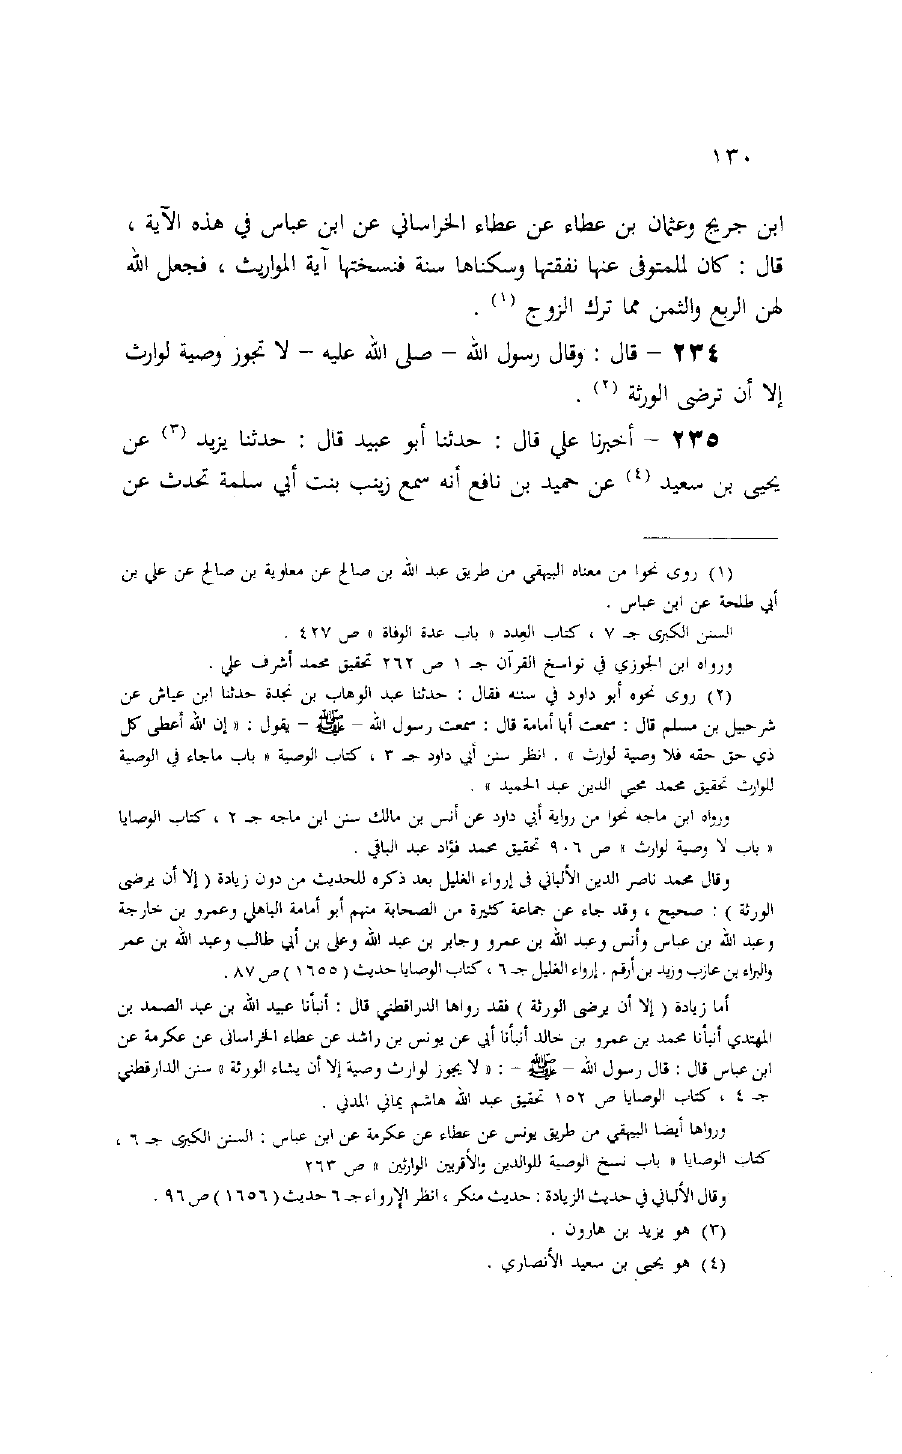 ١٣٠
ابن جريج وعثمان بن عطاء عن عطاء الخراساني عن ابن عباس في هذه الآية ،
قال : كان للمتوفى عنها نفقتها وسكناها سنة فنسختها آية المواريث ، فجعل الله
لهن الربع والثمن مما ترك الزوج (١) .
٢٣٤ – قال : وقال رسول الله – صلى الله عليه – لا تجوز وصية لوارث
إلا أن ترضى الورثة (٢) .
٢٣٥ – أخبرنا علي قال : حدثنا أبو عبيد قال : حدثنا يزيد (٣) عن
يحيى بن سعيد (٤) عن حميد بن نافع أنه سمع زينب بنت أبي سلمة تحدث عن
(١) روى نحوا من معناه البيهقي من طريق عبد الله بن صالح عن معاوية بن صالح عن علي بن
أبي طلحة عن ابن عباس .
السنن الكبرى جـ ٧ ، كتاب العدد « باب عدة الوفاة » ص ٤٢٧ .
ورواه ابن الجوزي في نواسخ القرآن جـ ١ ص ٢٦٢ تحقيق محمد أشرف علي .
(٢) روى نحوه أبو داود في سننه فقال : حدثنا عبد الوهاب بن نجدة حدثنا ابن عياش عن
شرحبيل بن مسلم قال : سمعت أبا أمامة قال : سمعت رسول الله – ﷺ – يقول : « إن الله أعطى كل
ذي حق حقه فلا وصية لوارث » . انظر سنن أبي داود جـ ٣ ، كتاب الوصية « باب ماجاء في الوصية
للوارث تحقيق محمد محيي الدين عبد الحميد » .
ورواه ابن ماجه نحوا من رواية أبي داود عن أنس بن مالك سنن ابن ماجه جـ ٢ ، كتاب الوصايا
« باب لا وصية لوارث » ص ٩٠٦ تحقيق محمد فؤاد عبد الباقي .
وقال محمد ناصر الدين الألباني في إرواء الغليل بعد ذكره للحديث من دون زيادة ( إلا أن يرضى
الورثة ) : صحيح ، وقد جاء عن جماعة كثيرة من الصحابة منهم أبو أمامة الباهلي وعمرو بن خارجة
وعبد الله بن عباس وأنس وعبد الله بن عمرو وجابر بن عبد الله وعلى بن أبي طالب وعبد الله بن عمر
والبراء بن عازب وزيد بن أرقم . إرواء الغليل جـ ٦ ، كتاب الوصايا حديث ( ١٦٥٥ ) ص ٨٧ .
أما زيادة ( إلا أن يرضى الورثة ) فقد رواها الدراقطني قال : أنبأنا عبيد الله بن عبد الصمد بن
المهتدي أنبأنا محمد بن عمرو بن خالد أنبأنا أبي عن يونس بن راشد عن عطاء الخراسانى عن عكرمة عن
ابن عباس قال : قال رسول الله – ﷺ – : « لا يجوز لوارث وصية إلا أن يشاء الورثة » سنن الدارقطني
جـ ٤ ، كتاب الوصايا ص ١٥٢ تحقيق عبد الله هاشم يماني المدني .
ورواها أيضا البيهقي من طريق يونس عن عطاء عن عكرمة عن ابن عباس : السنن الكبرى جـ ٦ ،
كتاب الوصايا « باب نسخ الوصية للوالدين والأقربين الوارثين » ص ٢٦٣
وقال الألباني في حديث الزيادة : حديث منكر ، انظر الإرواء جـ ٦ حديث ( ١٦٥٦ ) ص ٩٦ .
(٣) هو يزيد بن هارون .
(٤) هو يحيى بن سعيد الأنصاري .